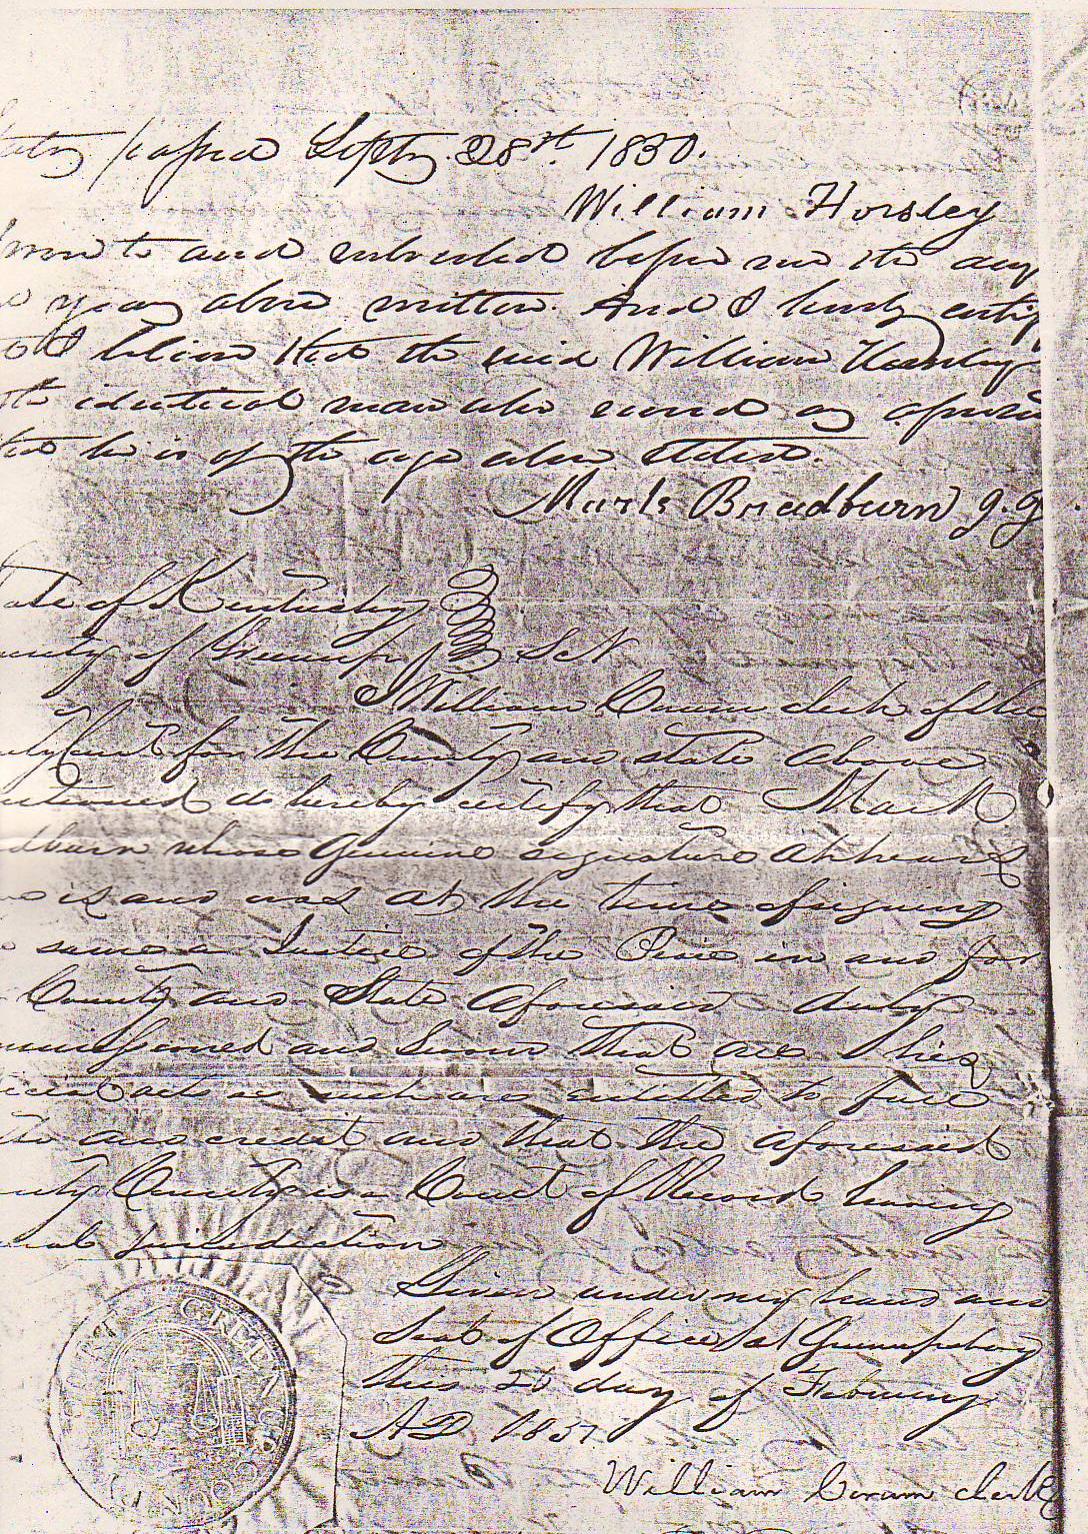 passed Septr 28st 1850.
William Horsley
to and subscribed before me the day
year above written. And I hereby certify
I believe that the said William Horsley
the identical man who served as aforesaid
he is of the age above stated.
Mark Bradburn J.P
ate of Kentucky
unty of Greenup Sct
William Corum clerk of the
Court for the County and state above
ntioned do hereby certify that Mark
dburn whose genuine signature appears
is and was at the time of signing
same a Justice of the Peace in and for
County and State aforesaid duly
and sworn that all his
acts as such are entitled to full
and credit and that the aforesaid
County is a Court of Record having
jurisdiction
Given under my hand and
Seal of Office at Greenupsburg
this 20 day of February
AD 1851
William Corum clerk
COURT
COUNTY